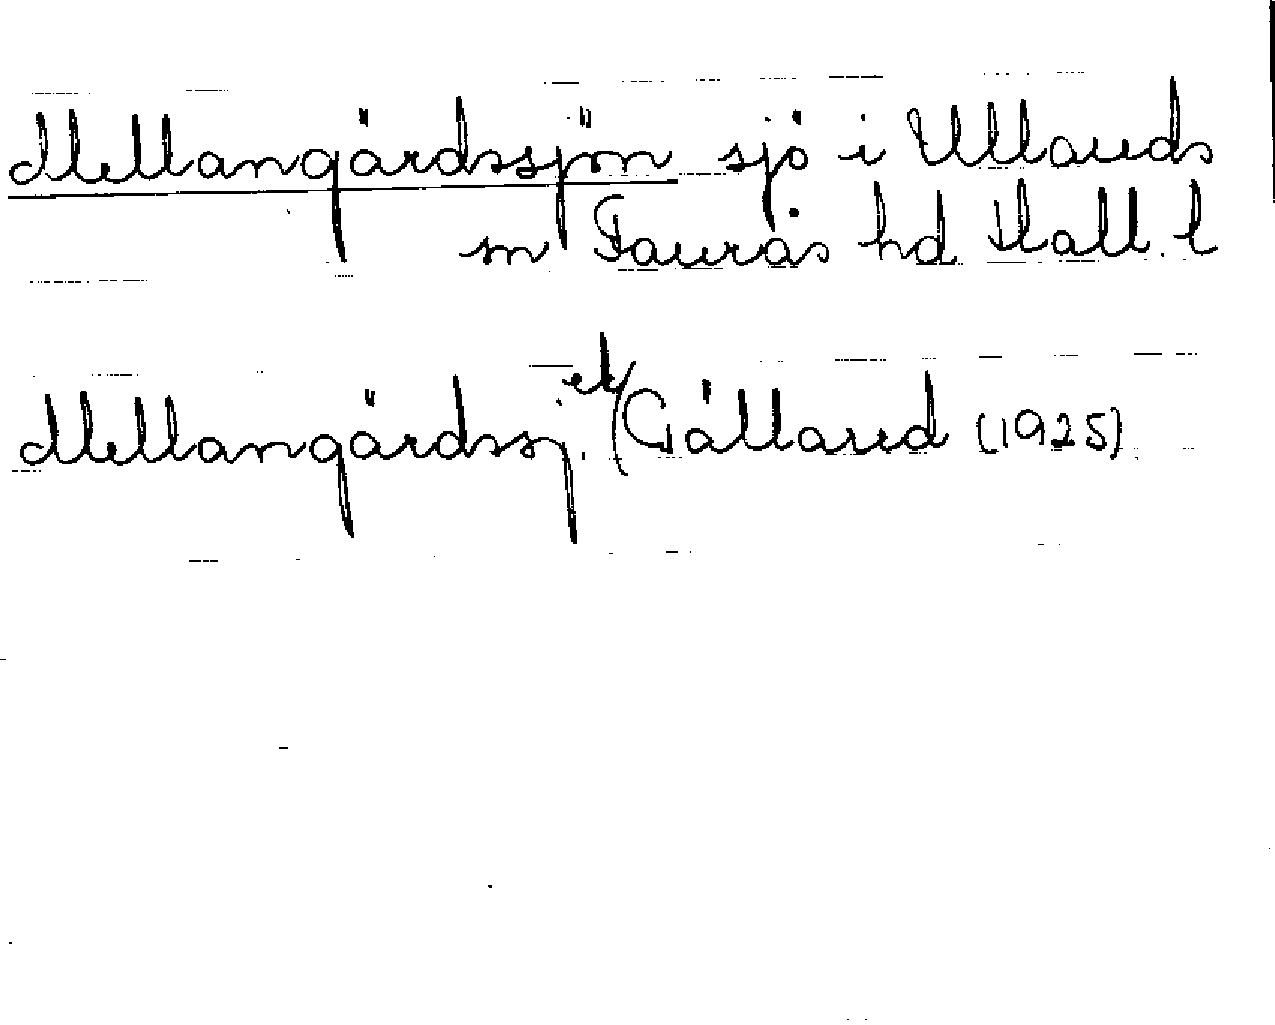 Mellangårdssjön sjö i Ullareds
sn Faurås hd Hall. l
Mellangårdssj. ek (Gällared (1925)